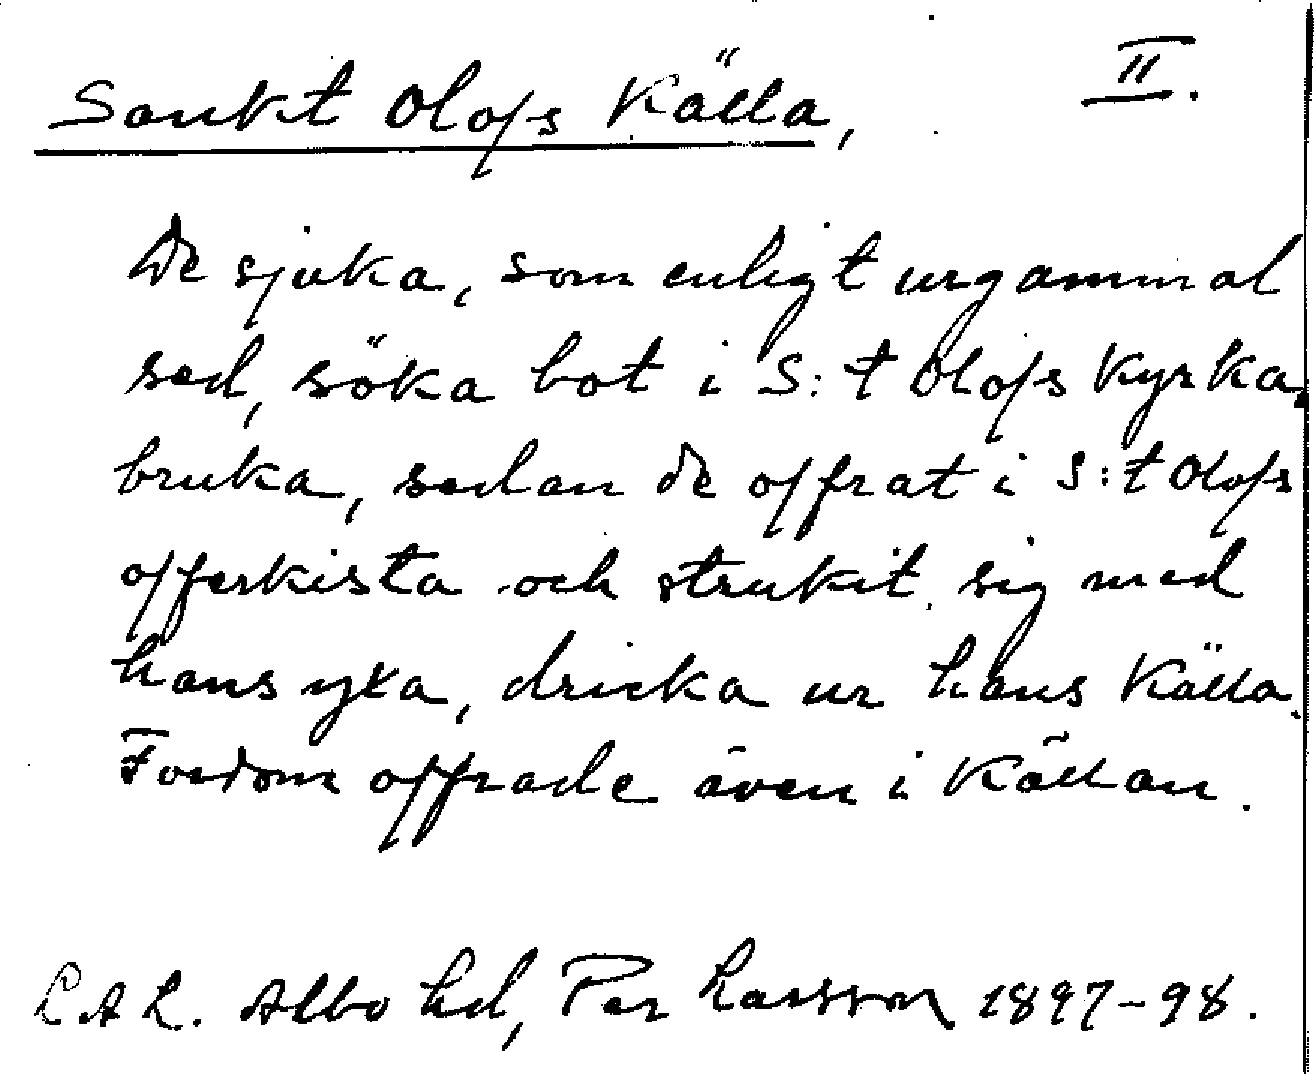 Sankt Olofs Källa, II.
De sjuka, som enligt urgammal
sed, söka bot i S:t Olofs Kyrka,
bruka, sedan de offrat i S:t Olofs
offerkista och strukit sig med
hans yxa, dricka ur hans Källa.
Fordom offrade även i Källan.
L A L. Albo hd, Per Larsson 1897-98.